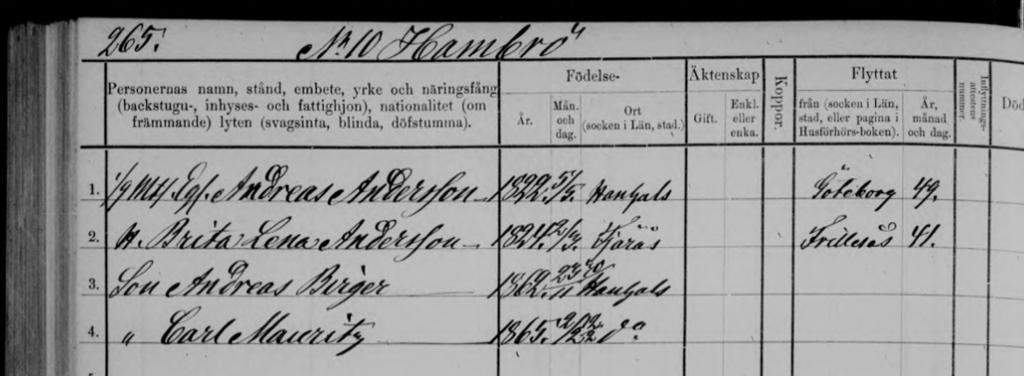 265. No 10 Hambrö
Personernas namn, stånd, embete, yrke och näringsfång (backstugu-, inhyses- och fattighjon), nationalitet (om främmande) lyten (svagsinta, blinda, döfstumma).
Födelse-
År.
Mån. och dag.
Ort (socken i Län, stad.)
Äktenskap
Gift.
Enkl. eller enka.
Koppor.
Flyttat
från (socken i Län, stad, eller pagina i Husförhörs-boken).
År, månad och dag.
Inflyttnings-attestens nummer
Död
1. 1/9 Mtl Egf. Andreas Andersson 1822. 5/5. Hanhals Göteborg 49.
2. H. Brita Lena Andersson 1824. 2/3. Fjärås Frillesås 41.
3. Son Andreas Birger 1862. Hanhals
4. " Carl Mauritz 1865. do